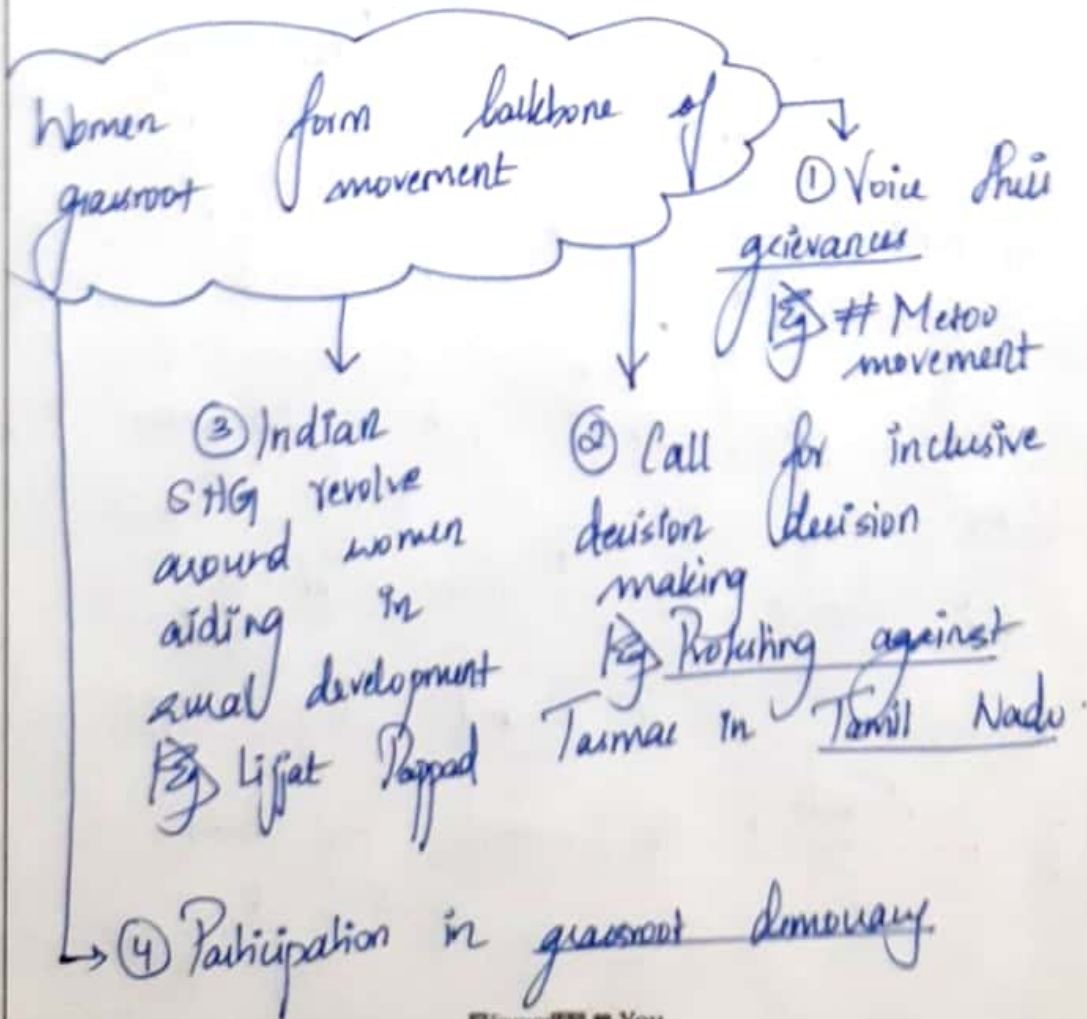 Women form backbone of
grassroot movement
① Voice their
grievances
Eg # Metoo
movement
② Call for inclusive
decision decision
making
Eg Protesting against
Tasmac in Tamil Nadu.
③ Indian
SHG revolve
around women
aiding in
rural development
Eg Lijjat Pappad
④ Participation in grassroot democracy
You